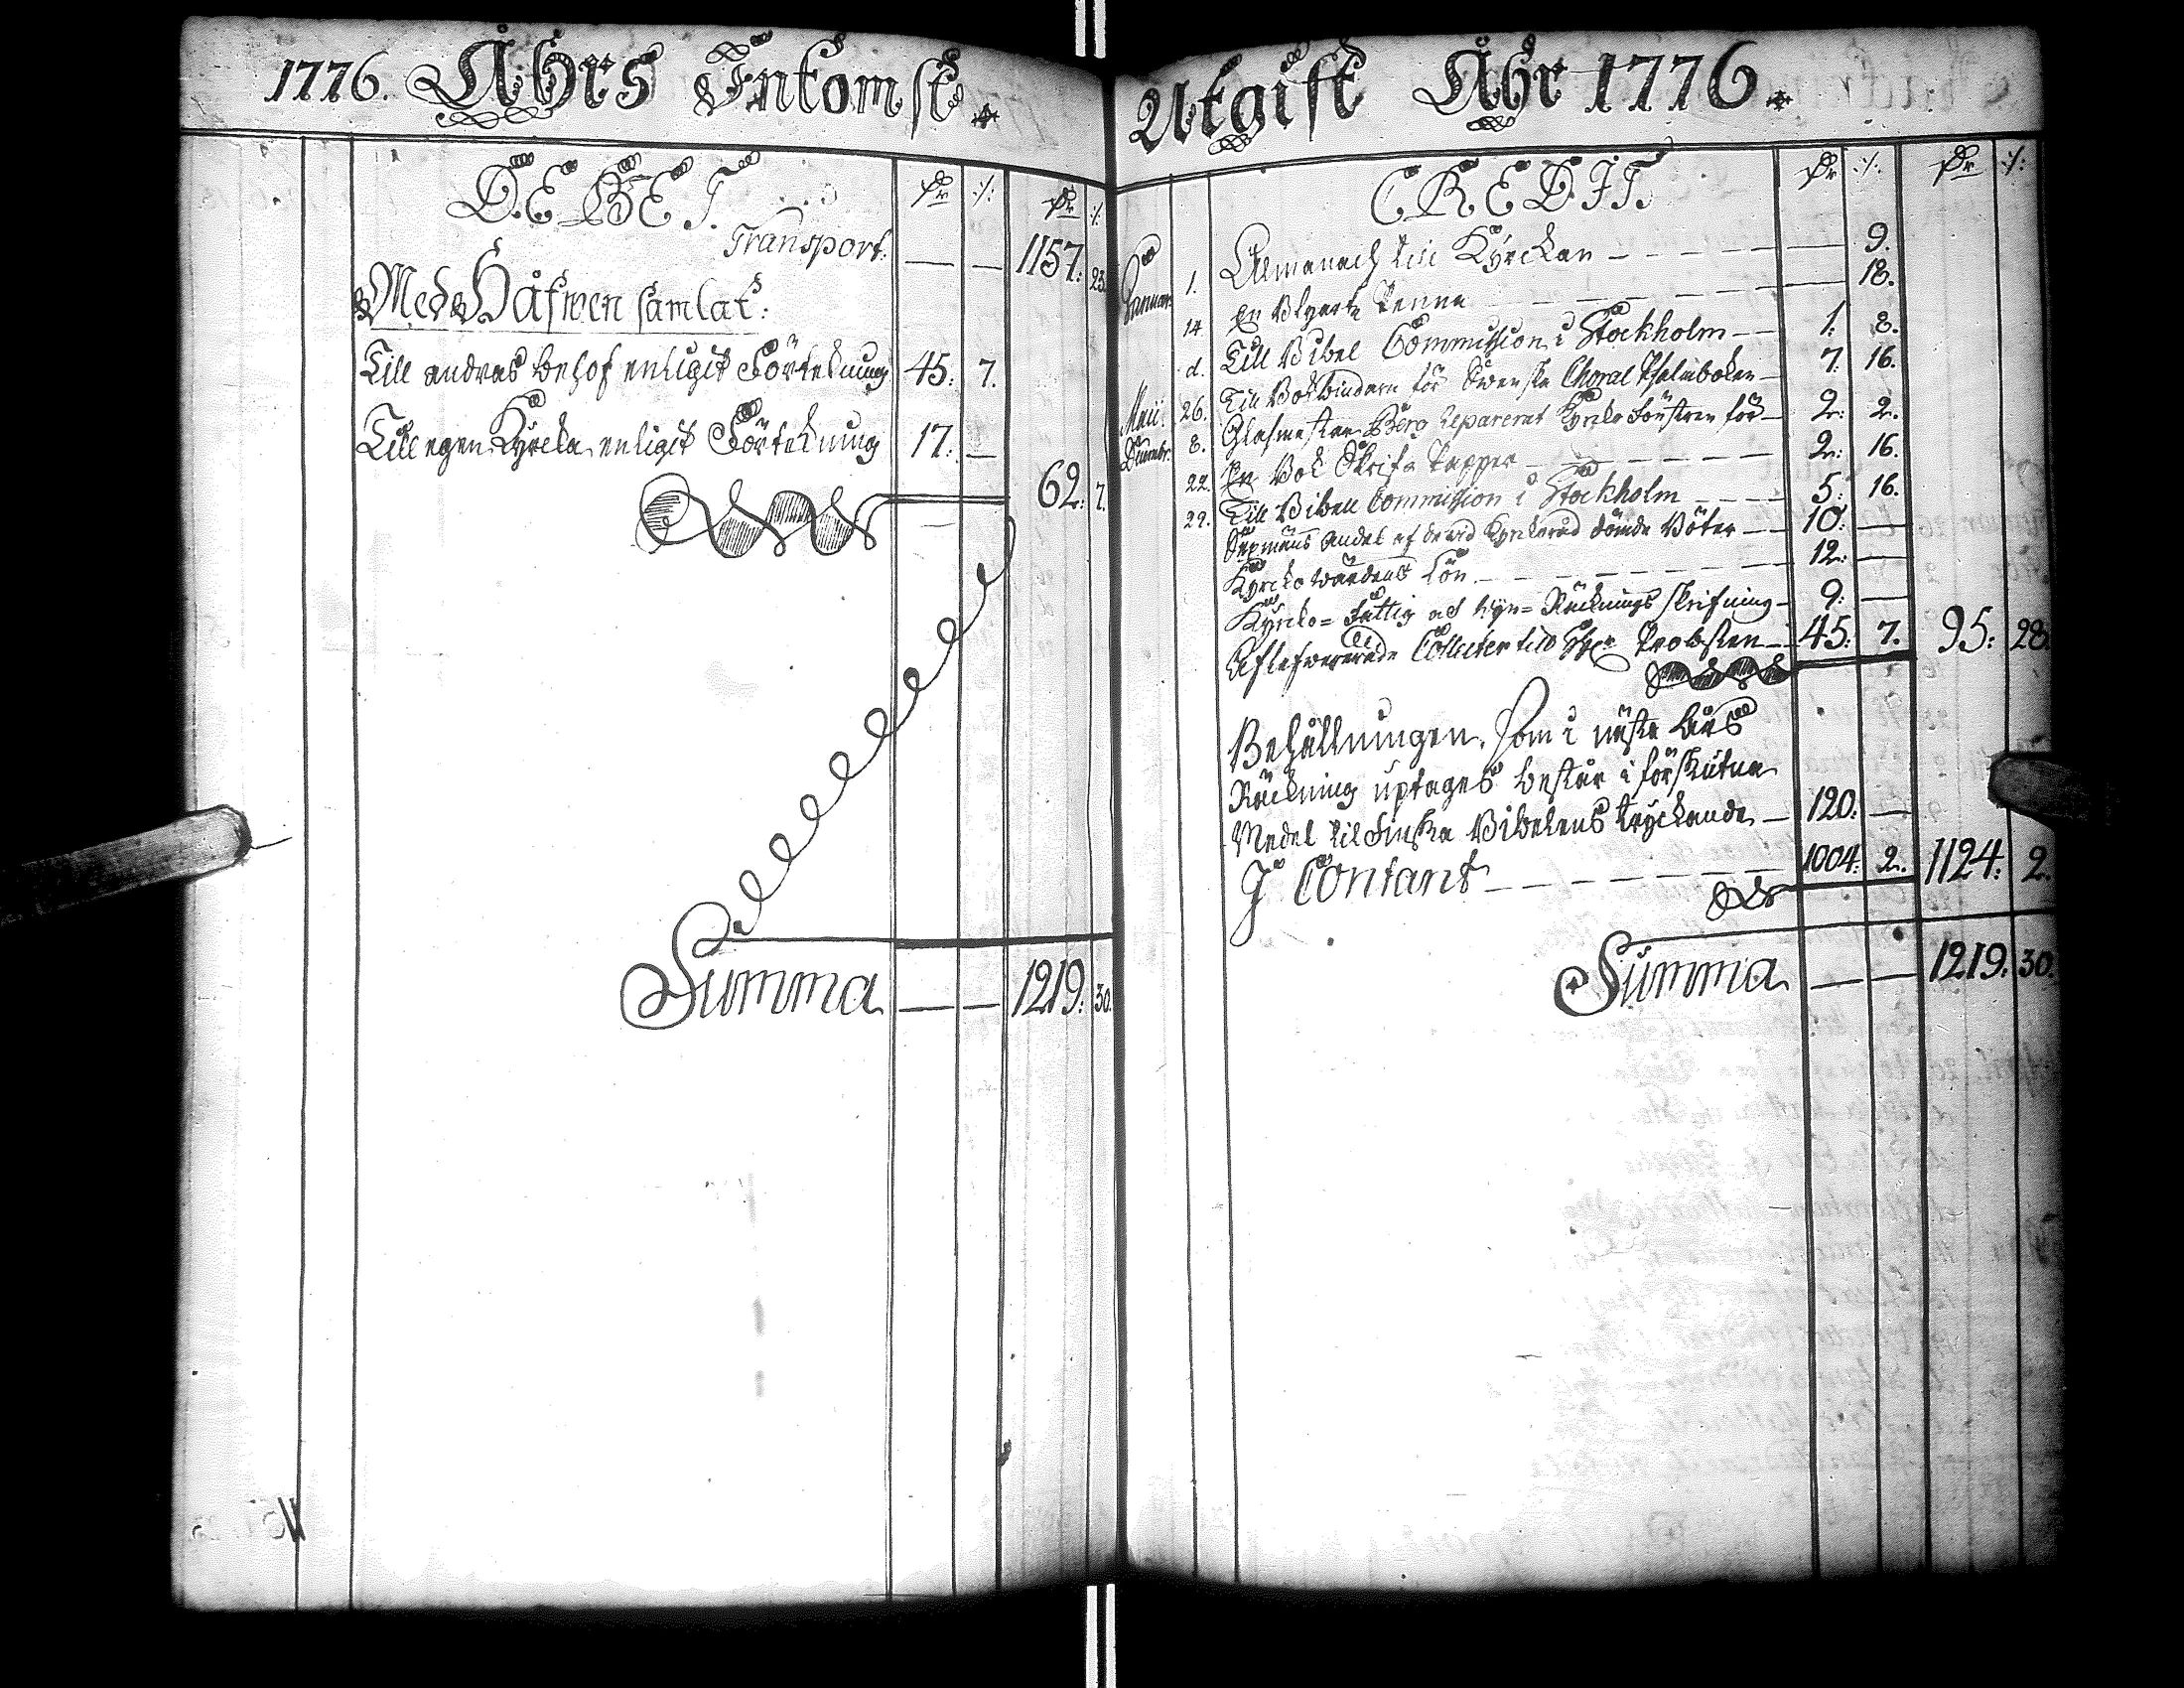 1776. Åhrs Inkomst.
DEBET.
Dr :/: Dr :/:
Transport. — — 1157: 23.
Med Håfwen samlat:
Till andras behof enligit Förtekning 45: 7.
Till egen Kyrcka enligit Förtekning 17: —
62: 7.
Summa — — 1219: 30.
Utgift Åhr 1776.
CREDIT.
Dr :/: Dr :/:
Januar. 1. Almanach till Kyrckan — 9.
En Blyerts Penna — 18.
14. Till Bibel Commission i Stockholm 1: 8.
d. Till Bokbindarn för Swenska Choral Psalmboken 7: 16.
Maii. 26. Glasmestar Berg reparerat Kyrko Fönstren för 2: 2.
Decembr. 8. En Bok Skrif Papper 2: 16.
22. Till Bibell Commission i Stockholm 5: 16.
29. Sexmäns andel af de wid Kyrkoråd dömde Böter 10: —
Kyrcko wärdens Lön 12: —
Kyrcko= Fattig och Räcknings skrifning 9: —
Aflefwererade Collecter till Probsten 45: 7. 95: 28.
Behållningen, som i nästa Åhrs
Räckning uptages består i förskutna
Medel til Finska Bibelens tryckande 120: —
I Contant 1004: 2. 1124: 2.
Summa — — 1219: 30.